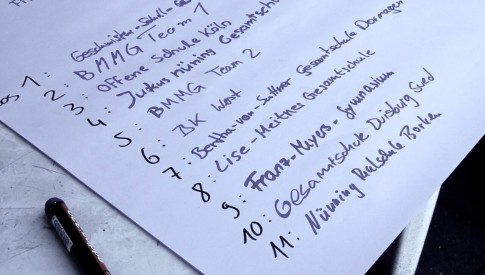 os 1: Geschwister-Scholl-Ge
2: BMMG Team 1
3: Offene Schule Köln
4: Justus Nüning Gesamtschu
5: BMMG Team 2
6: BK West
7: Bertha-von-Suttner Gesamtschule Dormagen
8: Lise-Meitner Gesamtschule
9: Franz-Meyers-Gymnasium
10: Gesamtschule Duisburg Sued
11: Nünning Realschule Borken